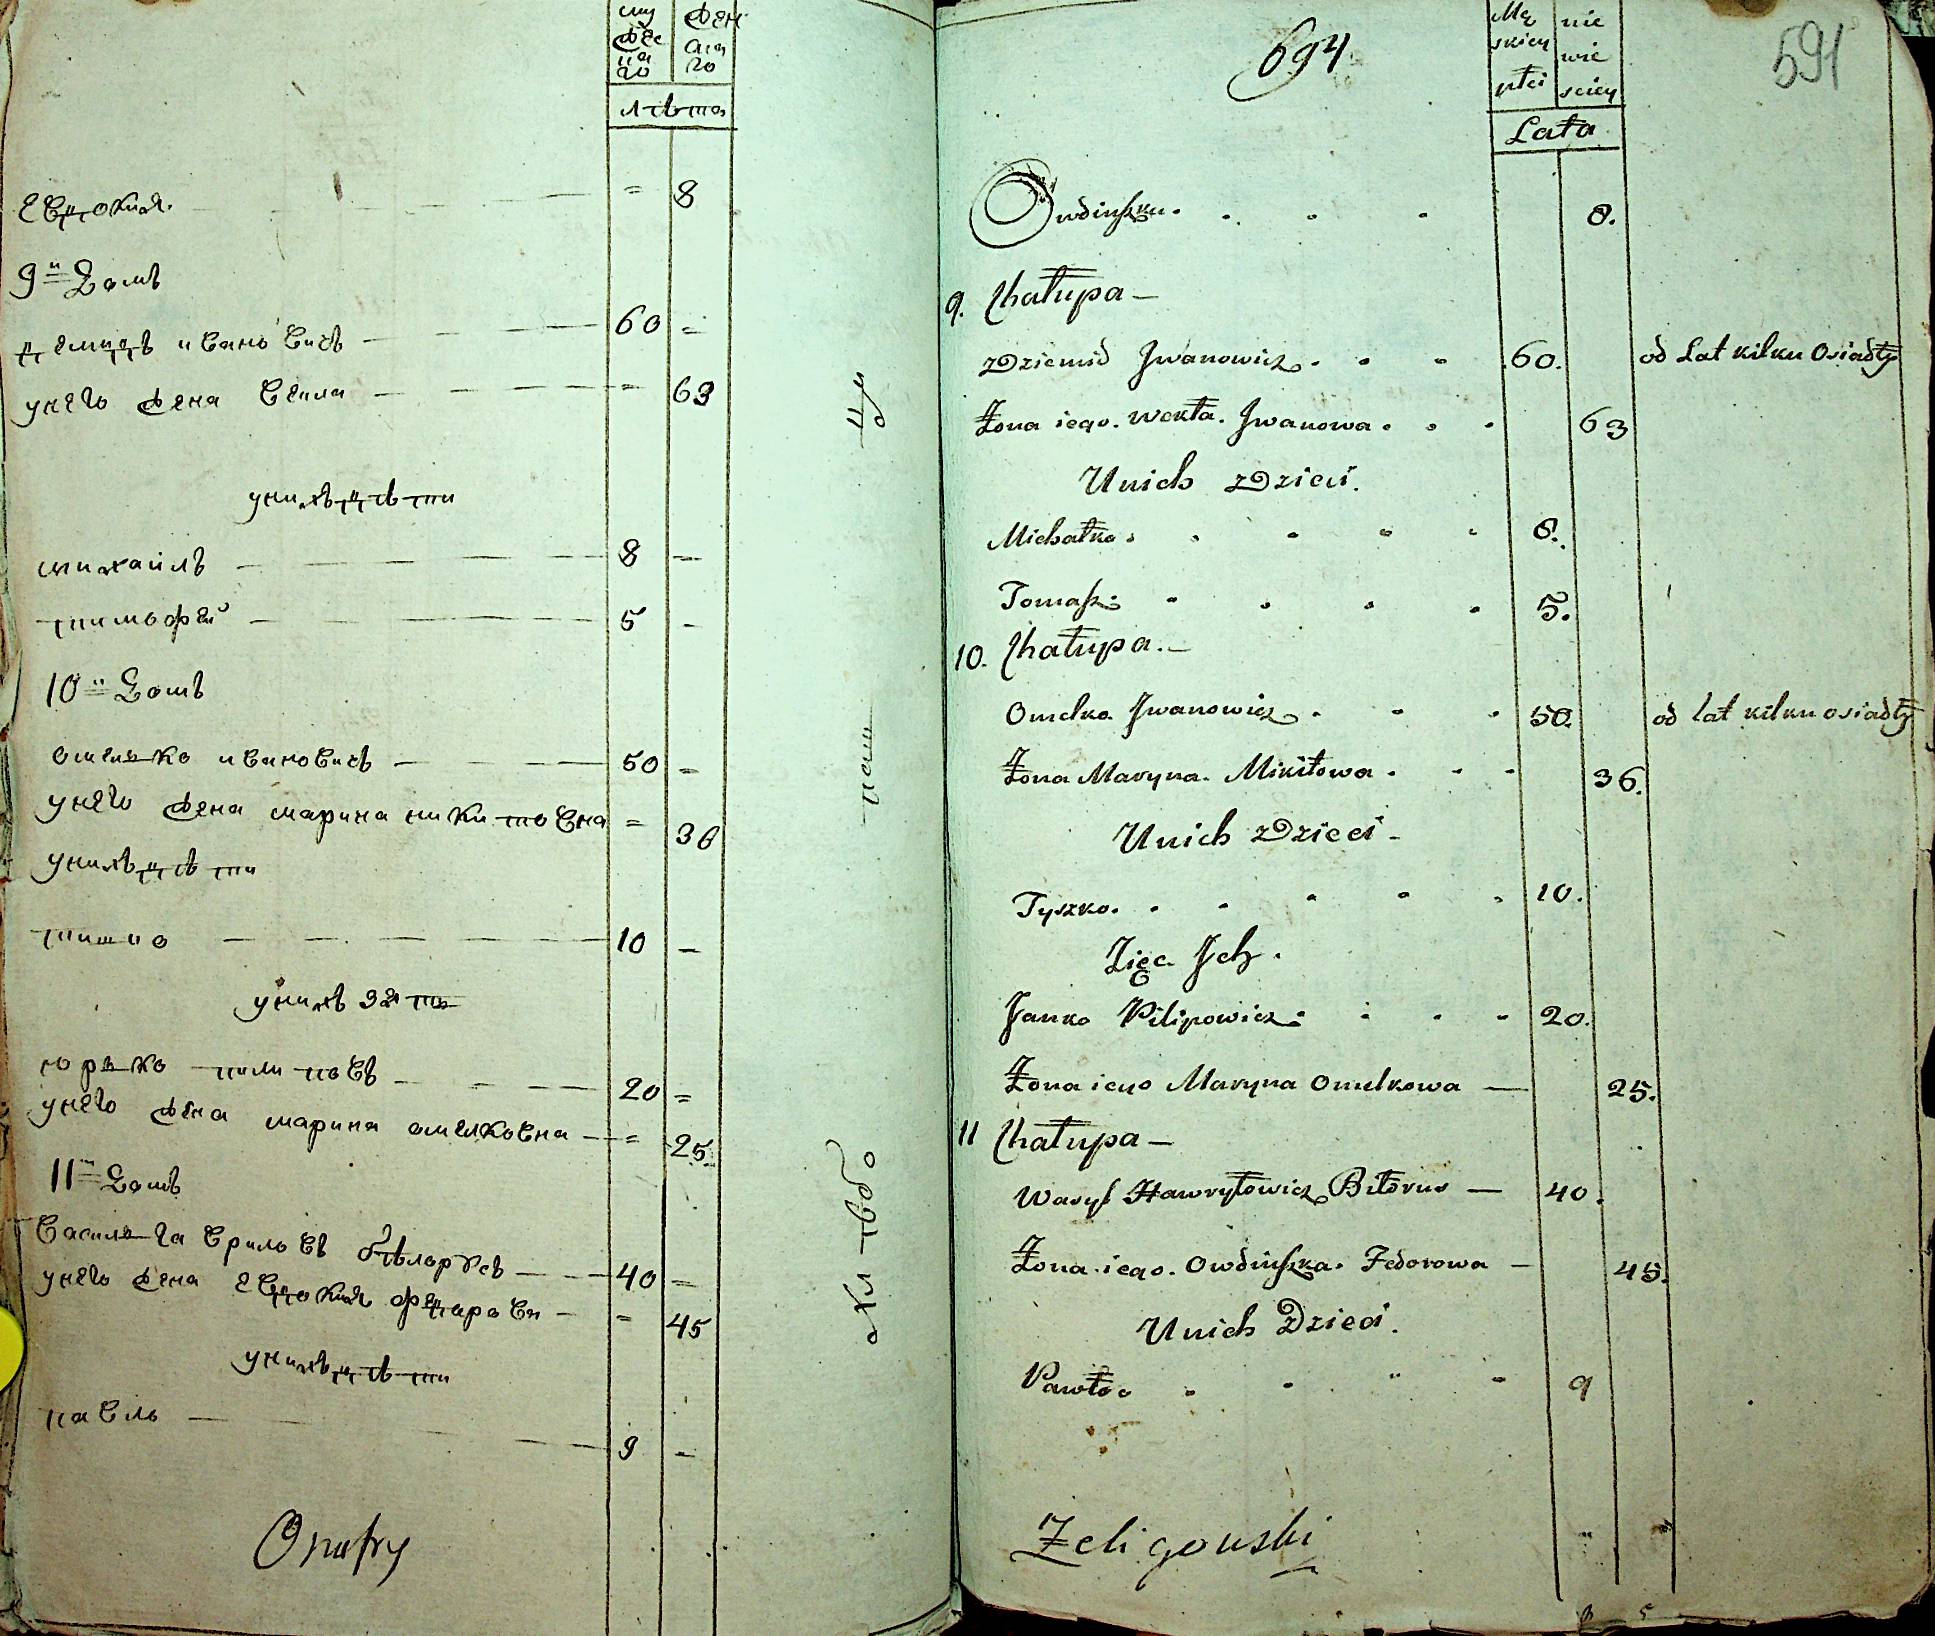 му
жес
ка
го
жен
ска
го
лѣта
Евдокия 8
9й Домъ
демидъ ивановичъ 60
унего жена векла 63
унихъ дѣти
михаилъ 8
тимофей 5
10й Домъ
омелько ивановичъ 50
унего жена марина никитовна 36
унихъ дѣти
тишко 10
унихъ зять
юрько пилиповъ 20
унего жена марина омелковна 25
11й Домъ
василь гавриловъ бѣлорусъ 40
унего жена евдокия федоровн 45
унихъ дѣти
павелъ 9
Onufry
694
591
Mę
skiey
płci
nie
wie
sciey
Lata
Owdiuszka 8.
9. Chałupa
Dziemid Jwanowicz 60. od Lat kilku Osiadły
Żona iego. Wekła. Jwanowa 63
Unich Dzieci.
Michałko 8.
Tomasz 5.
10. Chałupa.
Omelko Jwanowicz 50. od lat kilku osiadły
Żona Maryna. Mikitowa 36.
Unich Dzieci
Tyszko. 10.
Zięc Jch.
Janko Pilipowicz 20.
Żona iego Maryna Omelkowa 25.
11 Chałupa
Wasyl Hawryłowicz Biłorus 40.
Żona iego. Owdiuszka. Fedorowa 45.
Unich Dzieci.
Pawło 9
Żeligowski